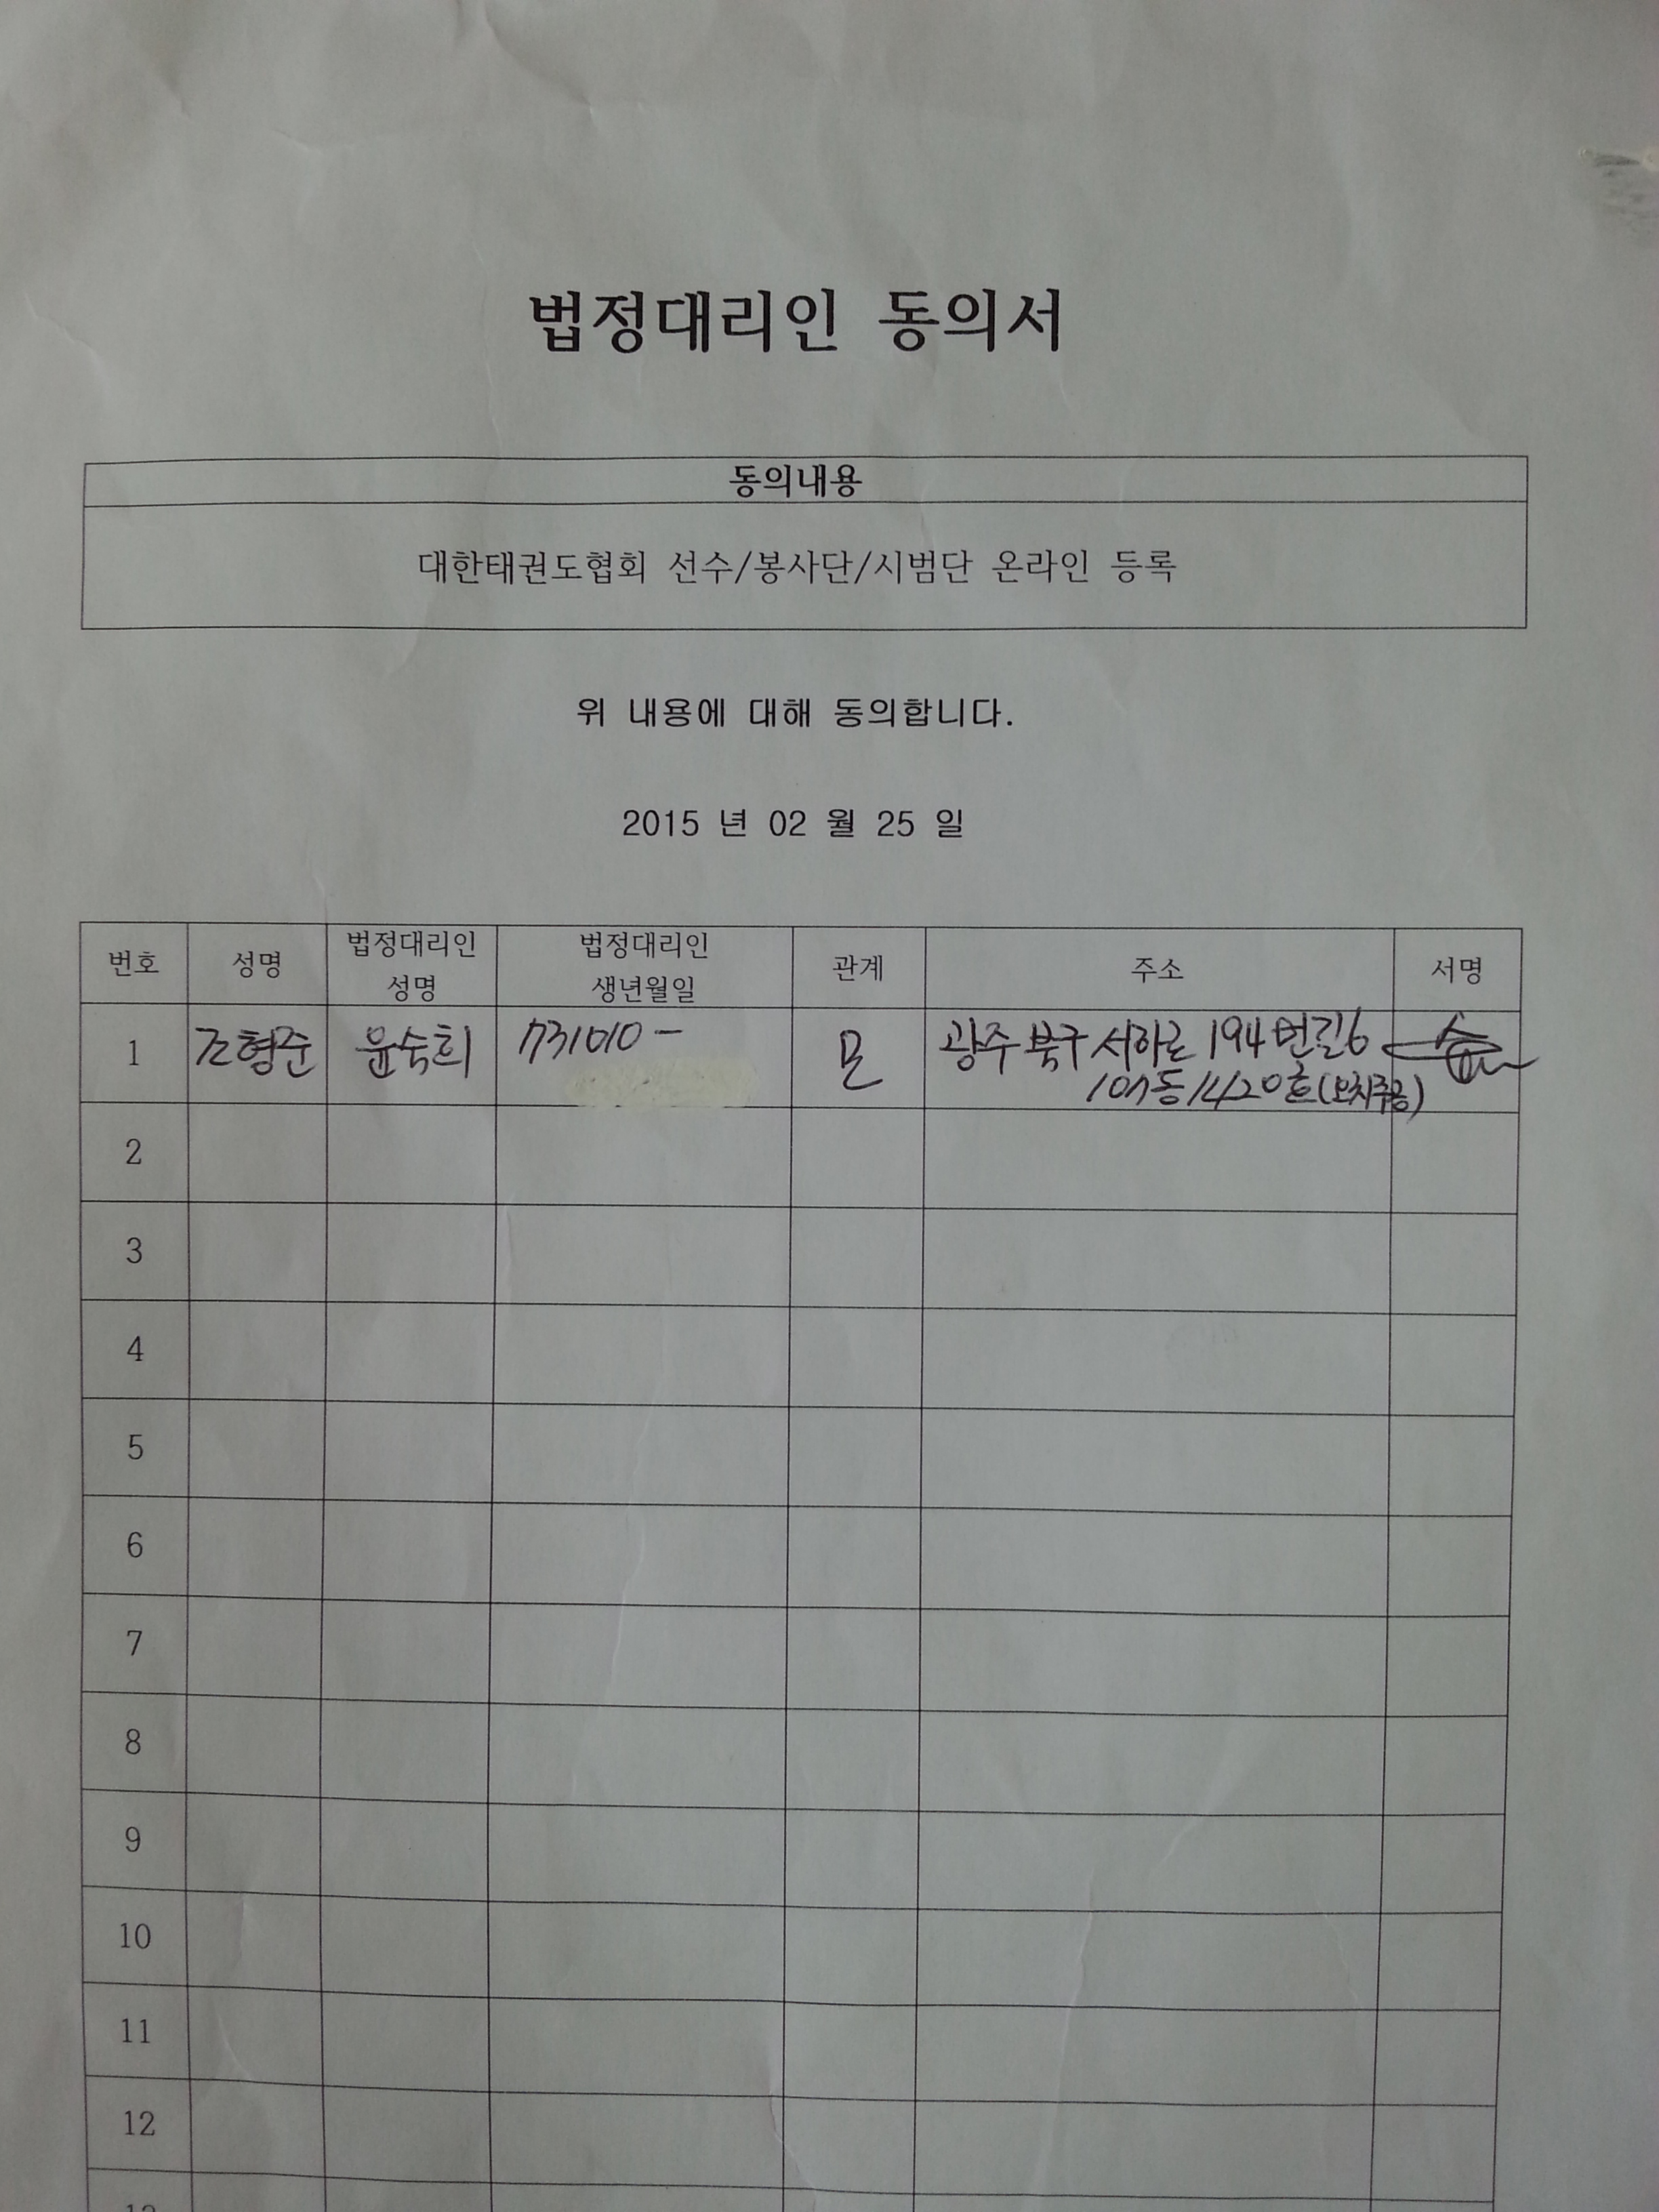 법정대리인 동의서
동의내용
대한태권도협회 선수/봉사단/시범단 온라인 등록
위 내용에 대해 동의합니다.
2015 년 02 월 25 일
번호 성명 법정대리인 성명 법정대리인 생년월일 관계 주소 서명
1 조형준 윤숙희 731010- 모 광주 북구 서하로 194번길6
동 1420호(오치주공)
2
3
4
5
6
7
8
9
10
11
12